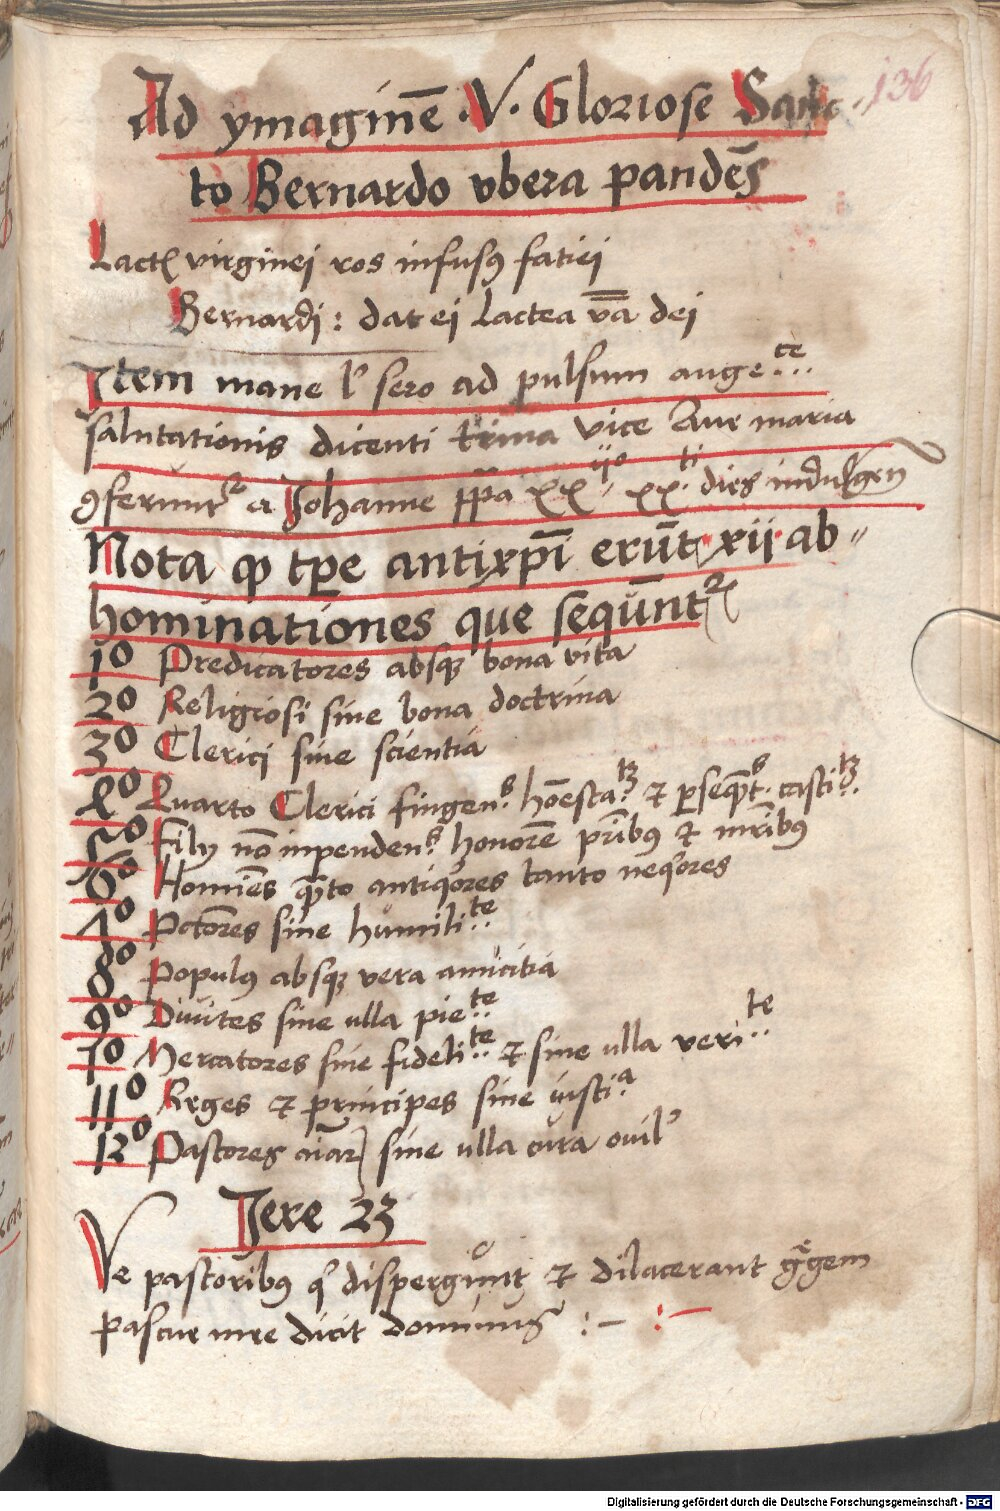 136
Ad ymaginē .V. Gloriose Sanc
to Bernardo vbera pandēs
Lactꝭ virginei ros infusꝯ fatiei
Bernardi : dat ei Lactea vīa dei
Item mane lꝰ sero ad pulsum angeᶜᵉ
salutationis dicenti trina vice Aue maria
ꝯferuntᷣ a Johanne ppa xx dies indulgen
Nota ꝙ tꝑe antixp̄i erūt xii ab〃
hominationes que sequūntᷣ
1º Predicatores absqꝫ bona vita
2º Religiosi sine bona doctrina
3º Clerici sine scientia
4º Quarto Clerici fingenˢ hōestaᵗꝫ et ꝑseq̄tˢ castiᵗꝫ
5º Filij nō inpendenˢ honorē pr̄ibꝯ et mr̄ibꝯ
6º Homīēs q̄ᵃto antiqͦres tanto neqͦres
7º Pctōres sine humiliᵗᵉ
8º Populꝯ absqꝫ vera amicitia
9º Diuites sine ulla pieᵗᵉ
10 Mercatores sine fideliᵗᵉ et sine ulla veriᵗᵉ
11º Reges et principes sine iustiᵃ
12º Pastores aīarꝝ sine ulla cura ouilꝰ
Jere 23
Ve pastoribꝯ qͥ dispergunt et dilacerant gͤgem
pascue mee dicit dominus :— :—
Digitalisierung gefördert durch die Deutsche Forschungsgemeinschaft - DFG